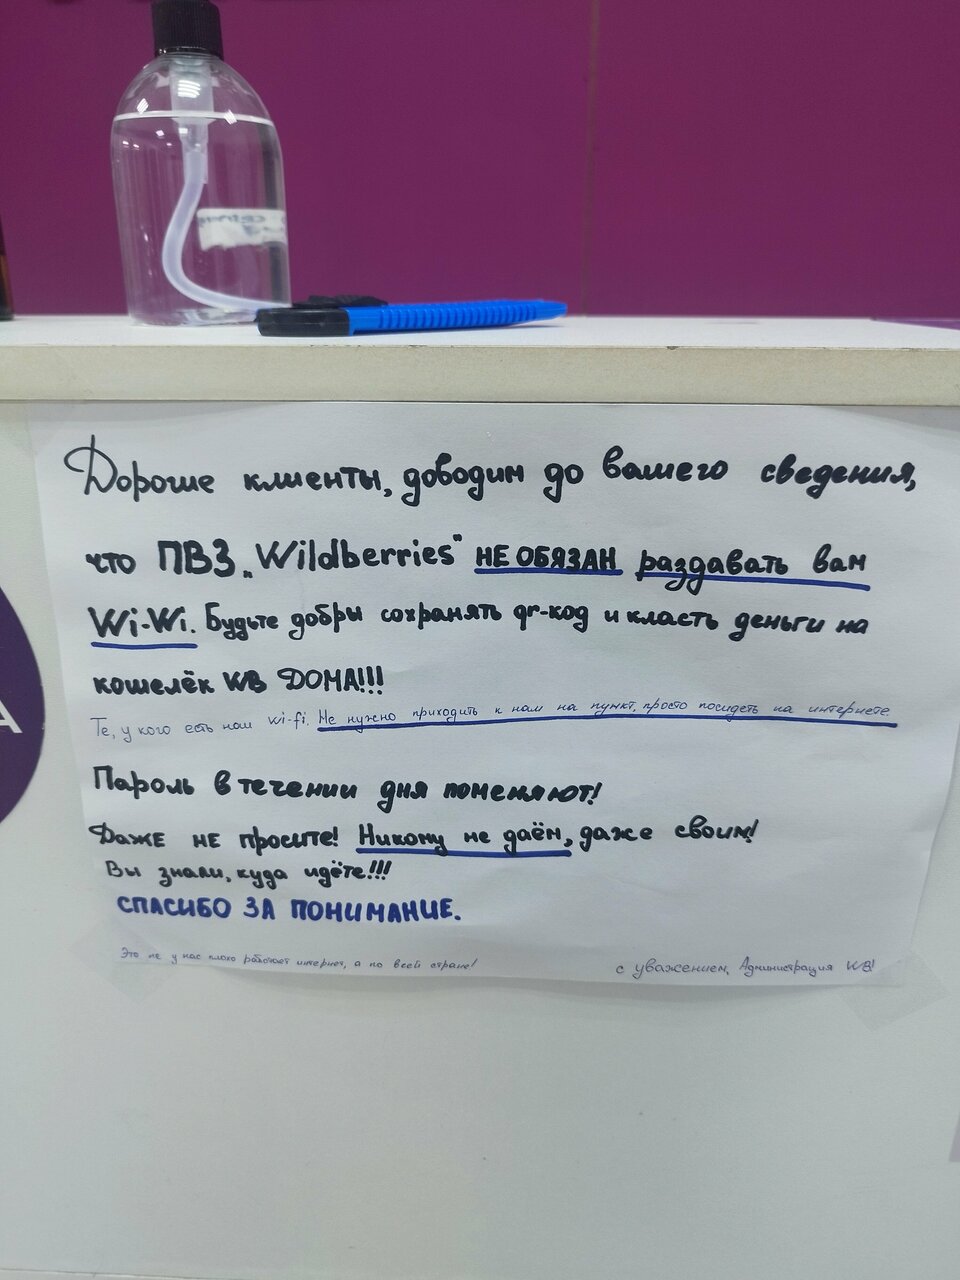 Дорогие клиенты, доводим до вашего сведения,
что ПВЗ „Wildberries" НЕ ОБЯЗАН раздавать вам
Wi-Wi. Будьте добры сохранять qr-код и класть деньги на
кошелёк WB ДОМА!!!
Те, у кого есть наш wi-fi. Не нужно приходить к нам на пункт, просто посидеть на интернете.
Пароль в течении дня поменяют!
Даже не просите! Никому не даём, даже своим!
Вы знали, куда идёте!!!
СПАСИБО ЗА ПОНИМАНИЕ.
Это не у нас плохо работает интернет, а по всей стране!
с уважением, Администрация WB!
А